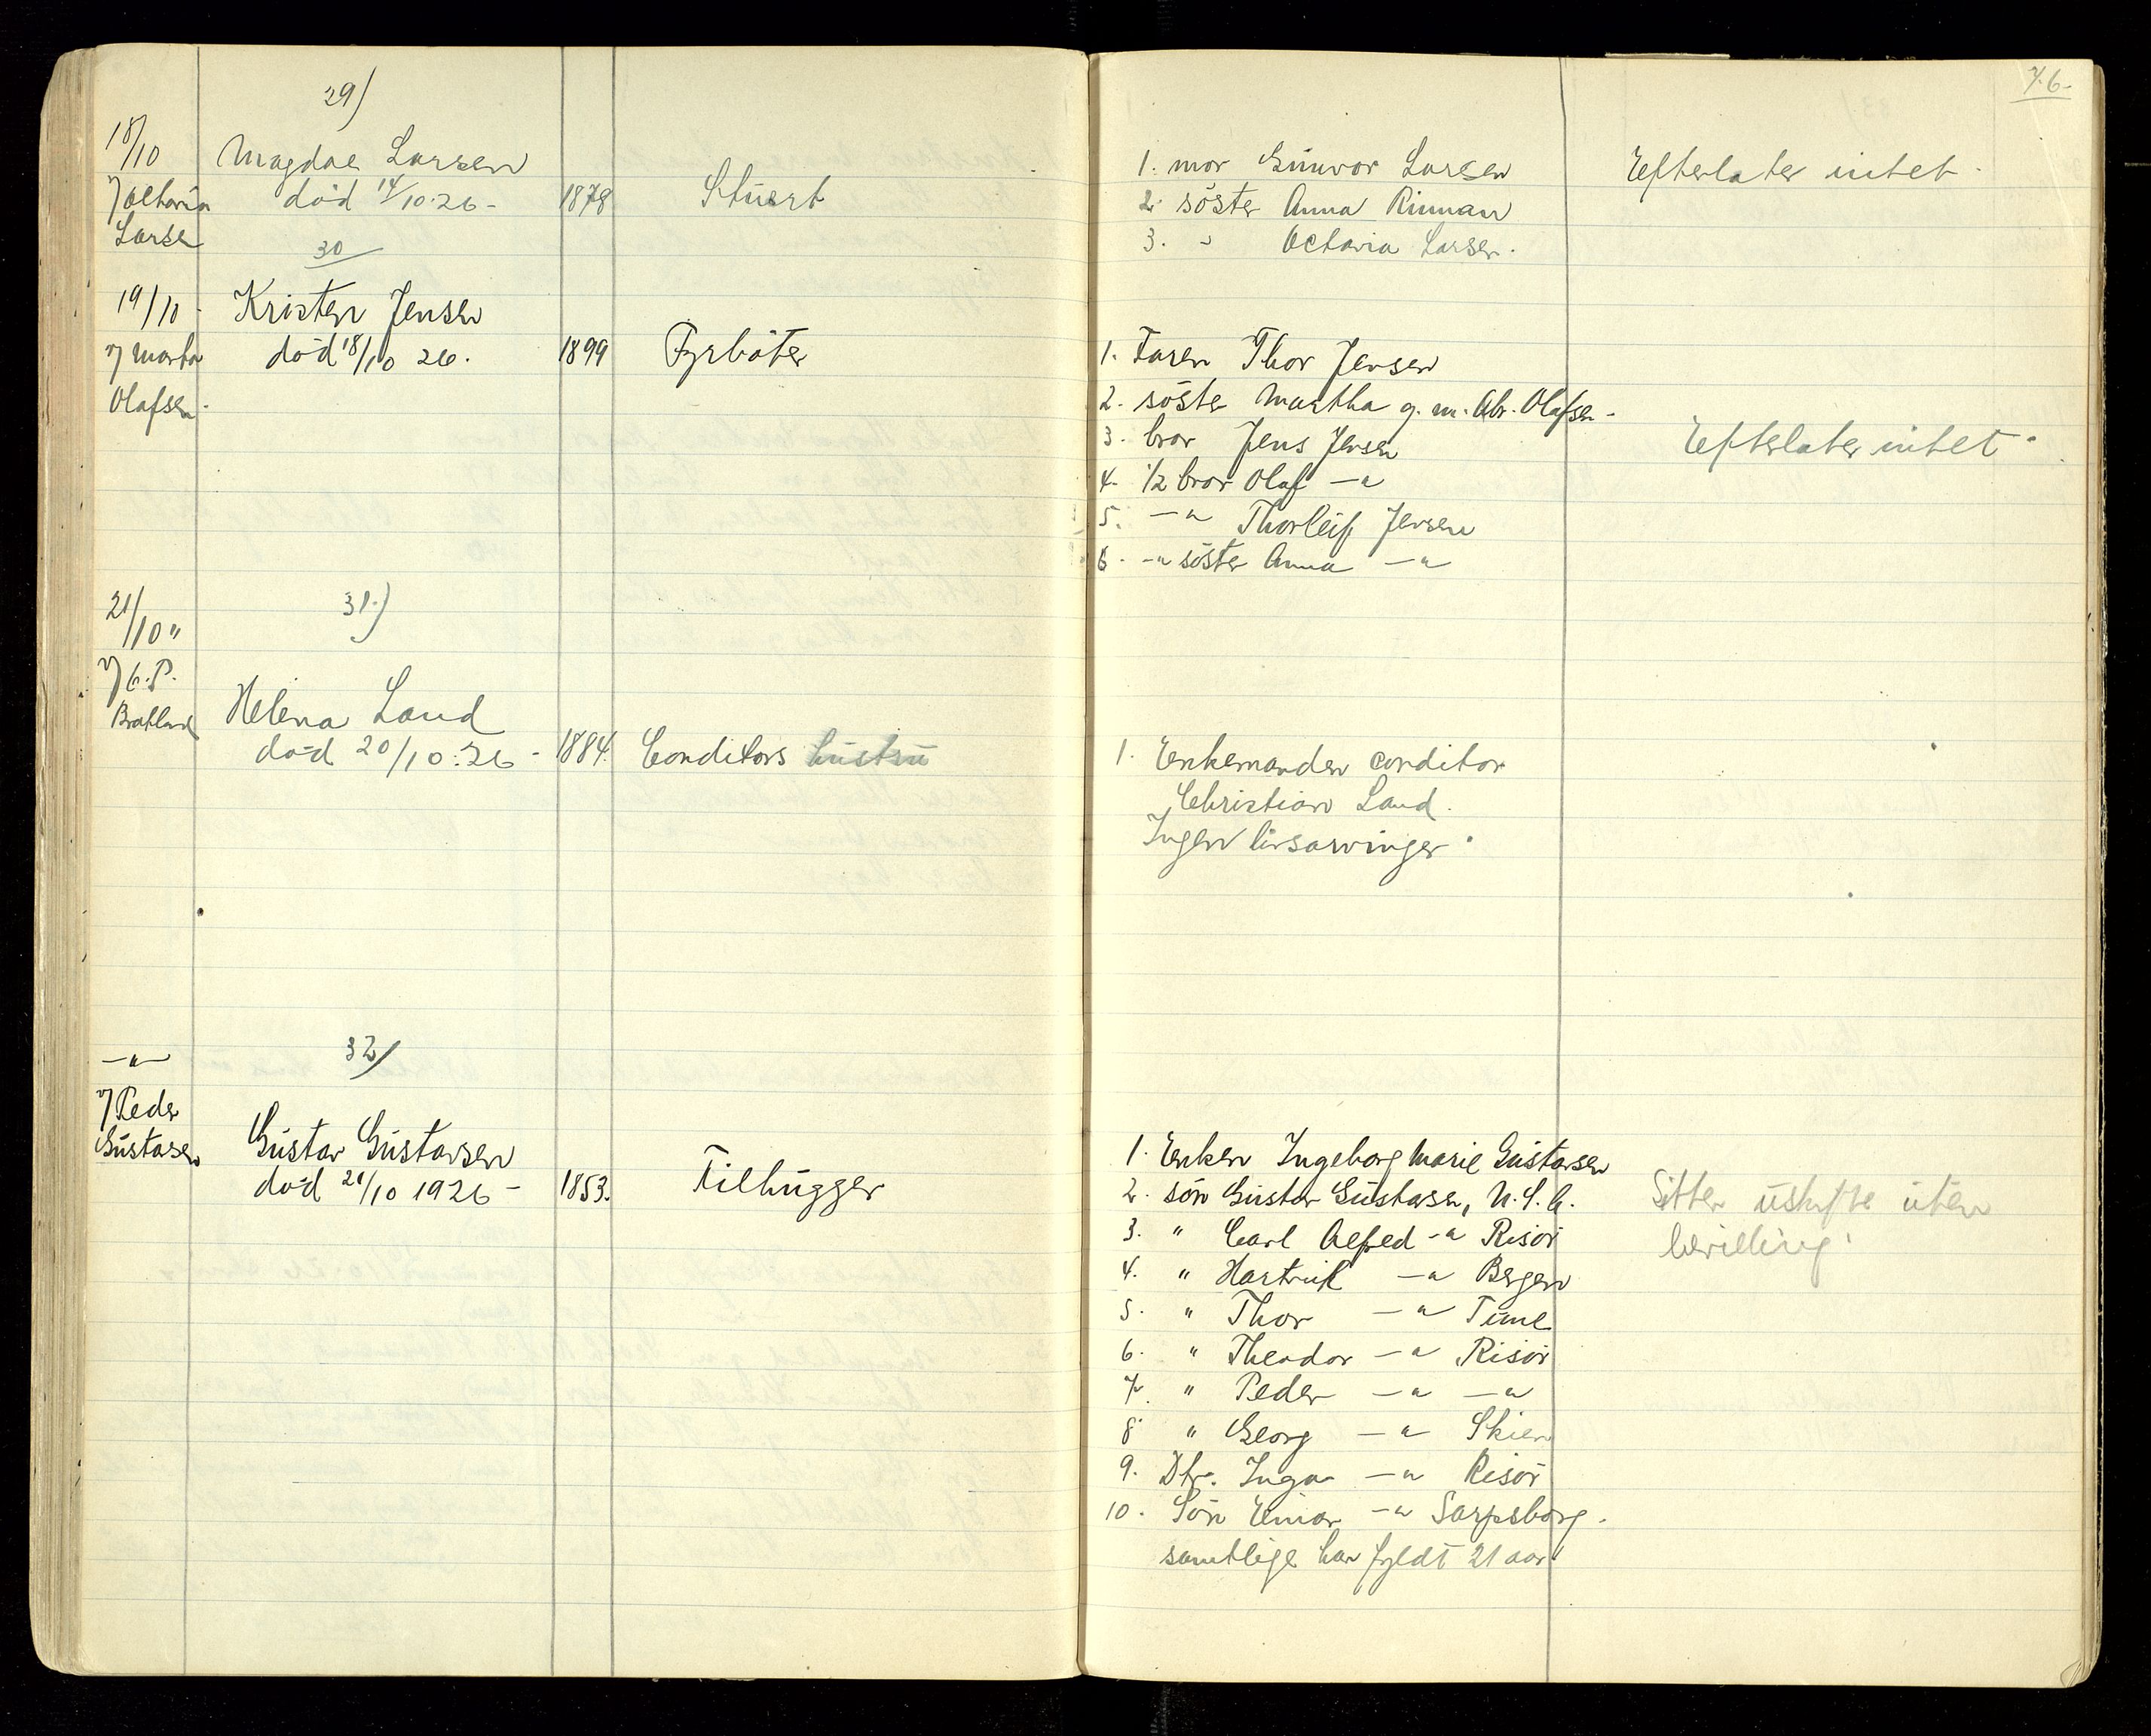 7.6.
29)
18/10
Magdae Larsen
v/ Octavia
død 14/10.26 -
1878
Stuert
Larsen
1. mor Gunvor Larsen
2. söster Anna Rinman
3. - Octavia Larsen.
Efterlater intet.
30
19/10 -
Kristen Jensen
v/ Marta
død 18/10 26.
1899
Fyrböter
Olafsen.
1. Faren Thor Jensen
2. söster Martha g. m. Abr. Olafsen -
3. bror Jens Jensen
4. 1/2 bror Olaf —"—
5. —"— Thorleif Jensen
6. —"— söster Anna —"—
Efterlater intet.
31.)
21/10 "
v/ C. P.
Helena Land
død 20/10.26 -
1884.
Conditors hustru
1. Enkemanden conditor
Christian Land.
Ingen livsarvinger.
32/
—"—
v/ Peder
Gustavsen
Gustav Gustavsen
død 21/10 1926 -
1853.
Tilhugger
1. Enken Ingeborg Marie Gustavsen
2. søn Gustav Gustavsen, U.S.A.
3. " Carl Alfred —"— Risör
4. " Hartvik —"— Bergen
5. " Thor —"—
6. " Theodor —"— Risör
7. " Peder —"— —"—
8 " Georg —"— Skien
9. Dtr. Inga —"— Risör
10. Sön Einar —"— Sarpsborg.
samtlige har fyldt 21 aar
Sitter uskifte uten
bevilling.